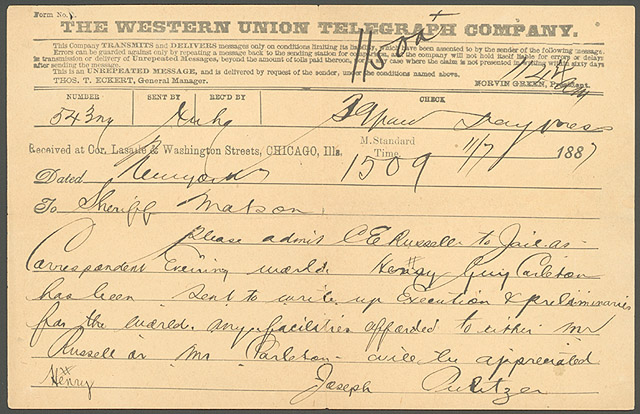 Form No. 1.
THE WESTERN UNION TELEGRAPH COMPANY.
This Company TRANSMITS and DELIVERS messages only on conditions limiting its liability, which have been assented to by the sender of the following message.
Errors can be guarded against only by repeating a message back to the sending station for comparison, and the company will not hold itself liable for errors or delays
in transmission or delivery of Unrepeated Messages, beyond the amount of tolls paid thereon, nor in any case where the claim is not presented in writing within sixty days
after sending the message.
This is an UNREPEATED MESSAGE, and is delivered by request of the sender, under the conditions named above.
THOS. T. ECKERT, General Manager. NORVIN GREEN, President.
NUMBER SENT BY REC'D BY CHECK
543 ny 39 paid
Received at Cor. Lasalle & Washington Streets, CHICAGO, Ills. M. Standard Time. 11/7 1887
1509
Dated Newyork
To Sheriff Matson
Please admit C E Russell to Jail as
Correspondent Evening world. Henry Guy Carleton
has been sent to write up Execution & preliminaries
for the world. any facilities afforded to either Mr
Russell or Mr Carleton will be appreciated
# Henry Joseph Pulitzer